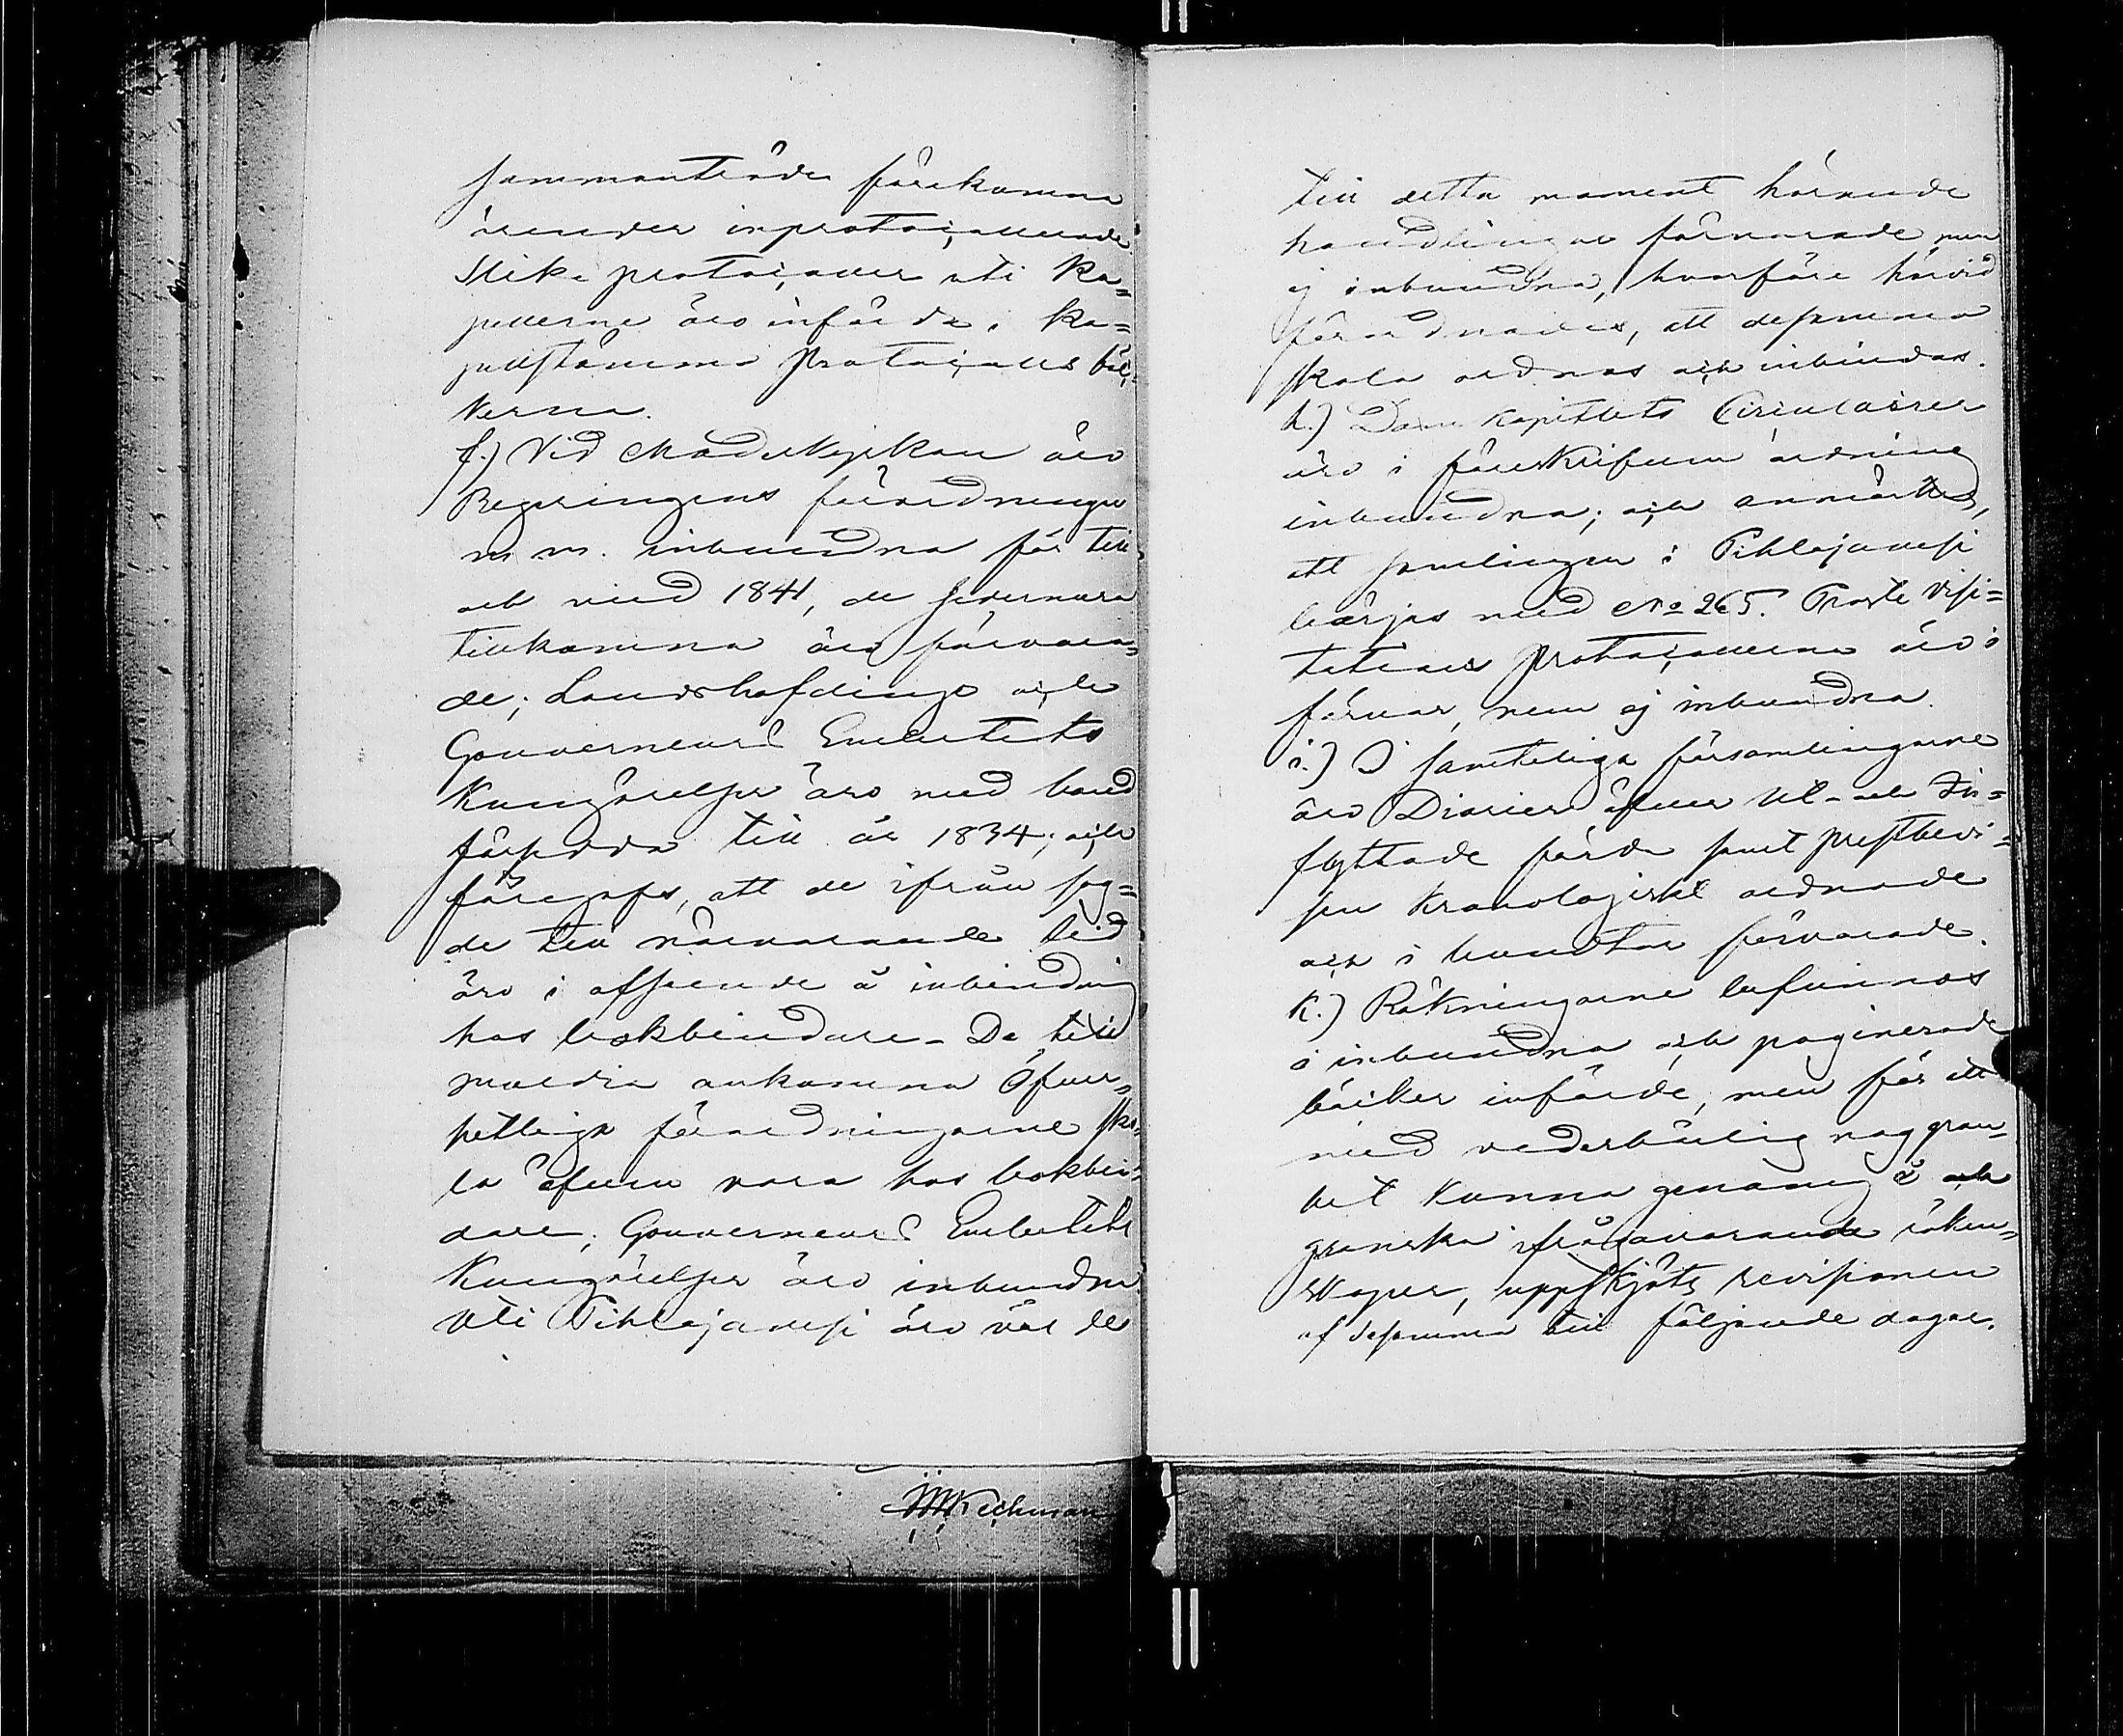 sammanträde förekomna
ärender inprotocollerade.
Slika protocoller uti Ka=
pellerna äro införda i Ka=
pellstämmo Protocolls böc,
kerna.
f.) Vid Moderkyrkan äro
Regeringens förordningar
m. m. inbundna för till
och med 1841, de sedermera
tillkomna äro förvara=
de; Landshöfdinge och
Gouverneurs Embetets
Kungörelser äro med band
försedda till år 1834; och
föregafs, att de ifrån sag=
de till närvarande tid
äro i afseende å inbindning
hos bokbindare. De till
ankomna Öfver=
hetliga förordningarne ska,
la äfven vara hos bokbin=
dare; Gouverneurs Embetets
Kungörelser äro inbundna
Uti Pihlajavesi äro väl de
till detta moment hörande
handlingar förvarade, men
ej inbundna, hvarföre härvid
förordnades, att desamma
skola ordnas och inbindas.
h.) Dom Kapitlets Circulairer
äro i föreskrifven ordning
inbundna; och anmärktes,
att samlingen i Pihlajavesi
börjas med No 265. Proste Visi=
tations Protocollerna äro i
förvar, men ej inbundna.
i.) I samteliga församlingarne
äro Diarier öfver Ut- och In=
flyttade förda samt prestbevi=
sen Kronologiskt ordnade
och i buntar förvarade.
K.) Räkningarne befinnas
i inbundna och paginerade
böcker införde, men för att
med vederbörlig noggran=
het kunna genomgå och
granska ifrågavarande räken=
skaper, uppskjöts revisionen
af desamma till följande dagar.